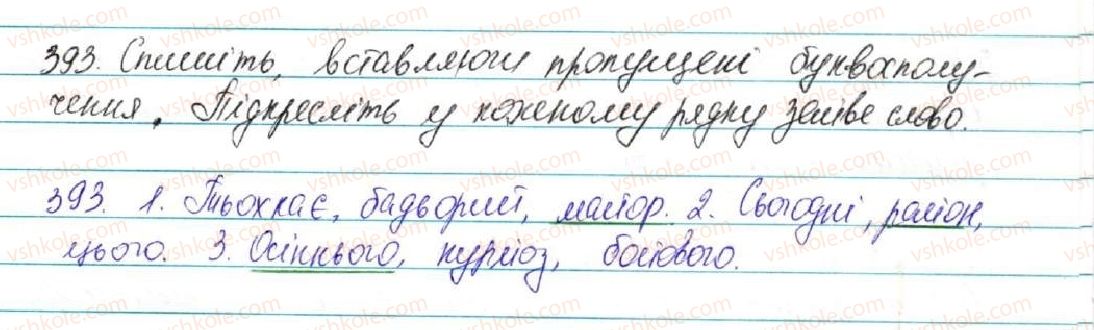 393. Спишіть, вставляючи пропущені буквосполу-
чення. Підкресліть у кожному рядку зайве слово.
393. 1. Тьохкає, бадьорий, майор. 2. Сьогодні, район,
цього. 3. Осіннього, курйоз, бойового.